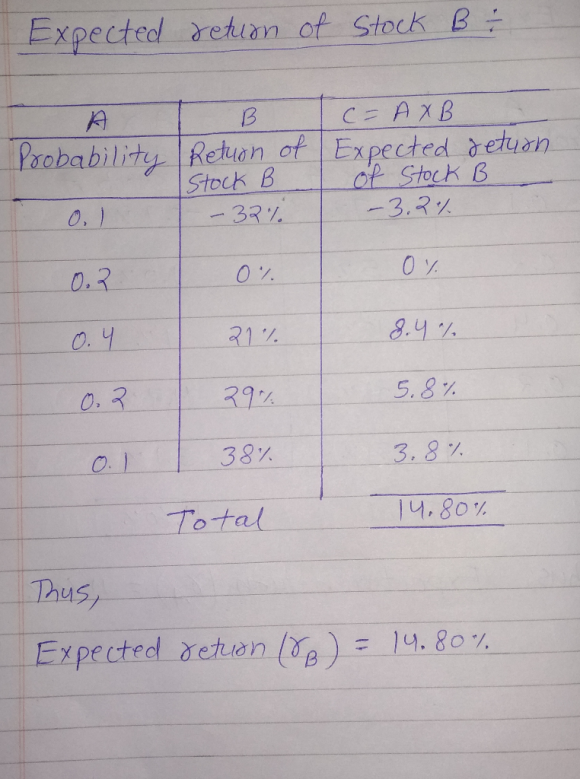 Expected return of Stock B ÷
A B C = A X B
Probability Return of Stock B Expected return of Stock B
0.1 -32% -3.2%
0.2 0% 0%
0.4 21% 8.4%
0.2 29% 5.8%
0.1 38% 3.8%
Total 14.80%
Thus,
Expected return (rB) = 14.80%